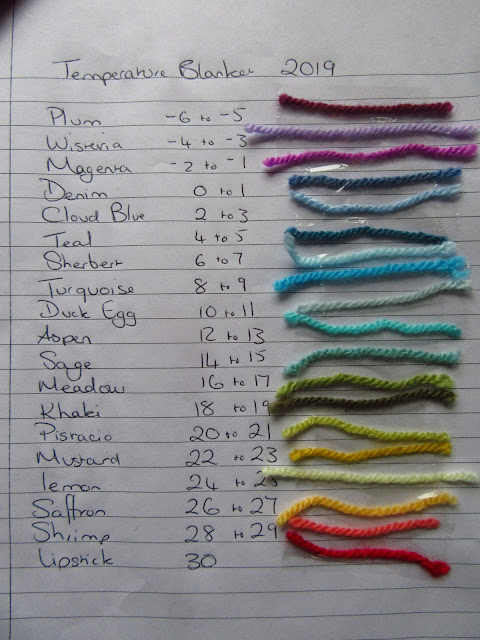 Temperature Blanket 2019
Plum -6 to -5
Wisteria -4 to -3
Magenta -2 to -1
Denim 0 to 1
Cloud Blue 2 to 3
Teal 4 to 5
Sherbert 6 to 7
Turquoise 8 to 9
Duck Egg 10 to 11
Aspen 12 to 13
Sage 14 to 15
Meadow 16 to 17
Khaki 18 to 19
Pistacio 20 to 21
Mustard 22 to 23
lemon 24 to 25
Saffron 26 to 27
Shrimp 28 to 29
Lipstick 30